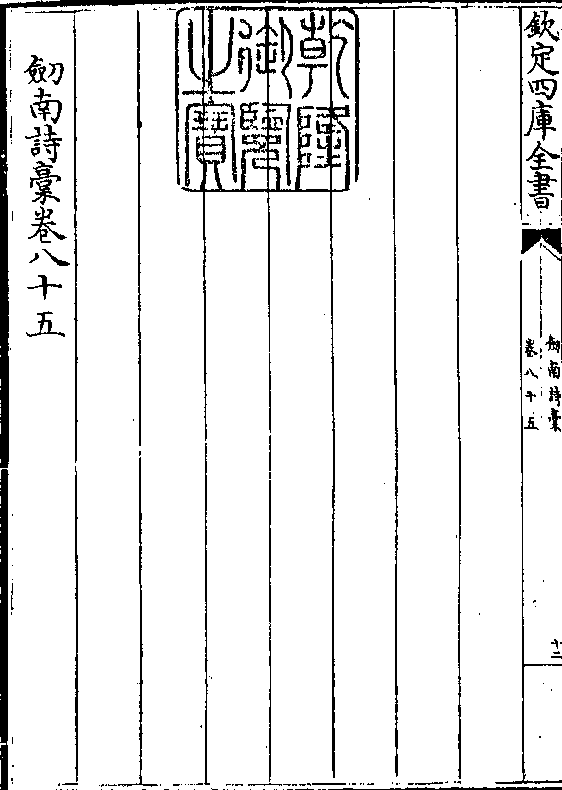 欽定四庫全書
劍南詩稾
卷八十五
十二
乾隆御覽之寳
劒南詩稾卷八十五